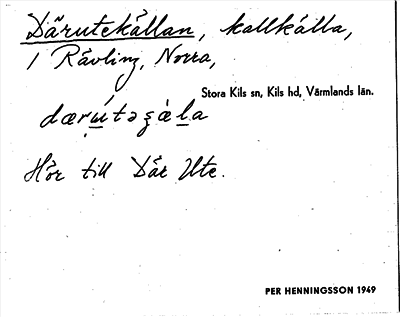 Därutekällan, kallkälla,
i Rävling, Norra,
Stora Kils sn, Kils hd, Värmlands län.
Hör till Där Ute.
PER HENNINGSSON 1949